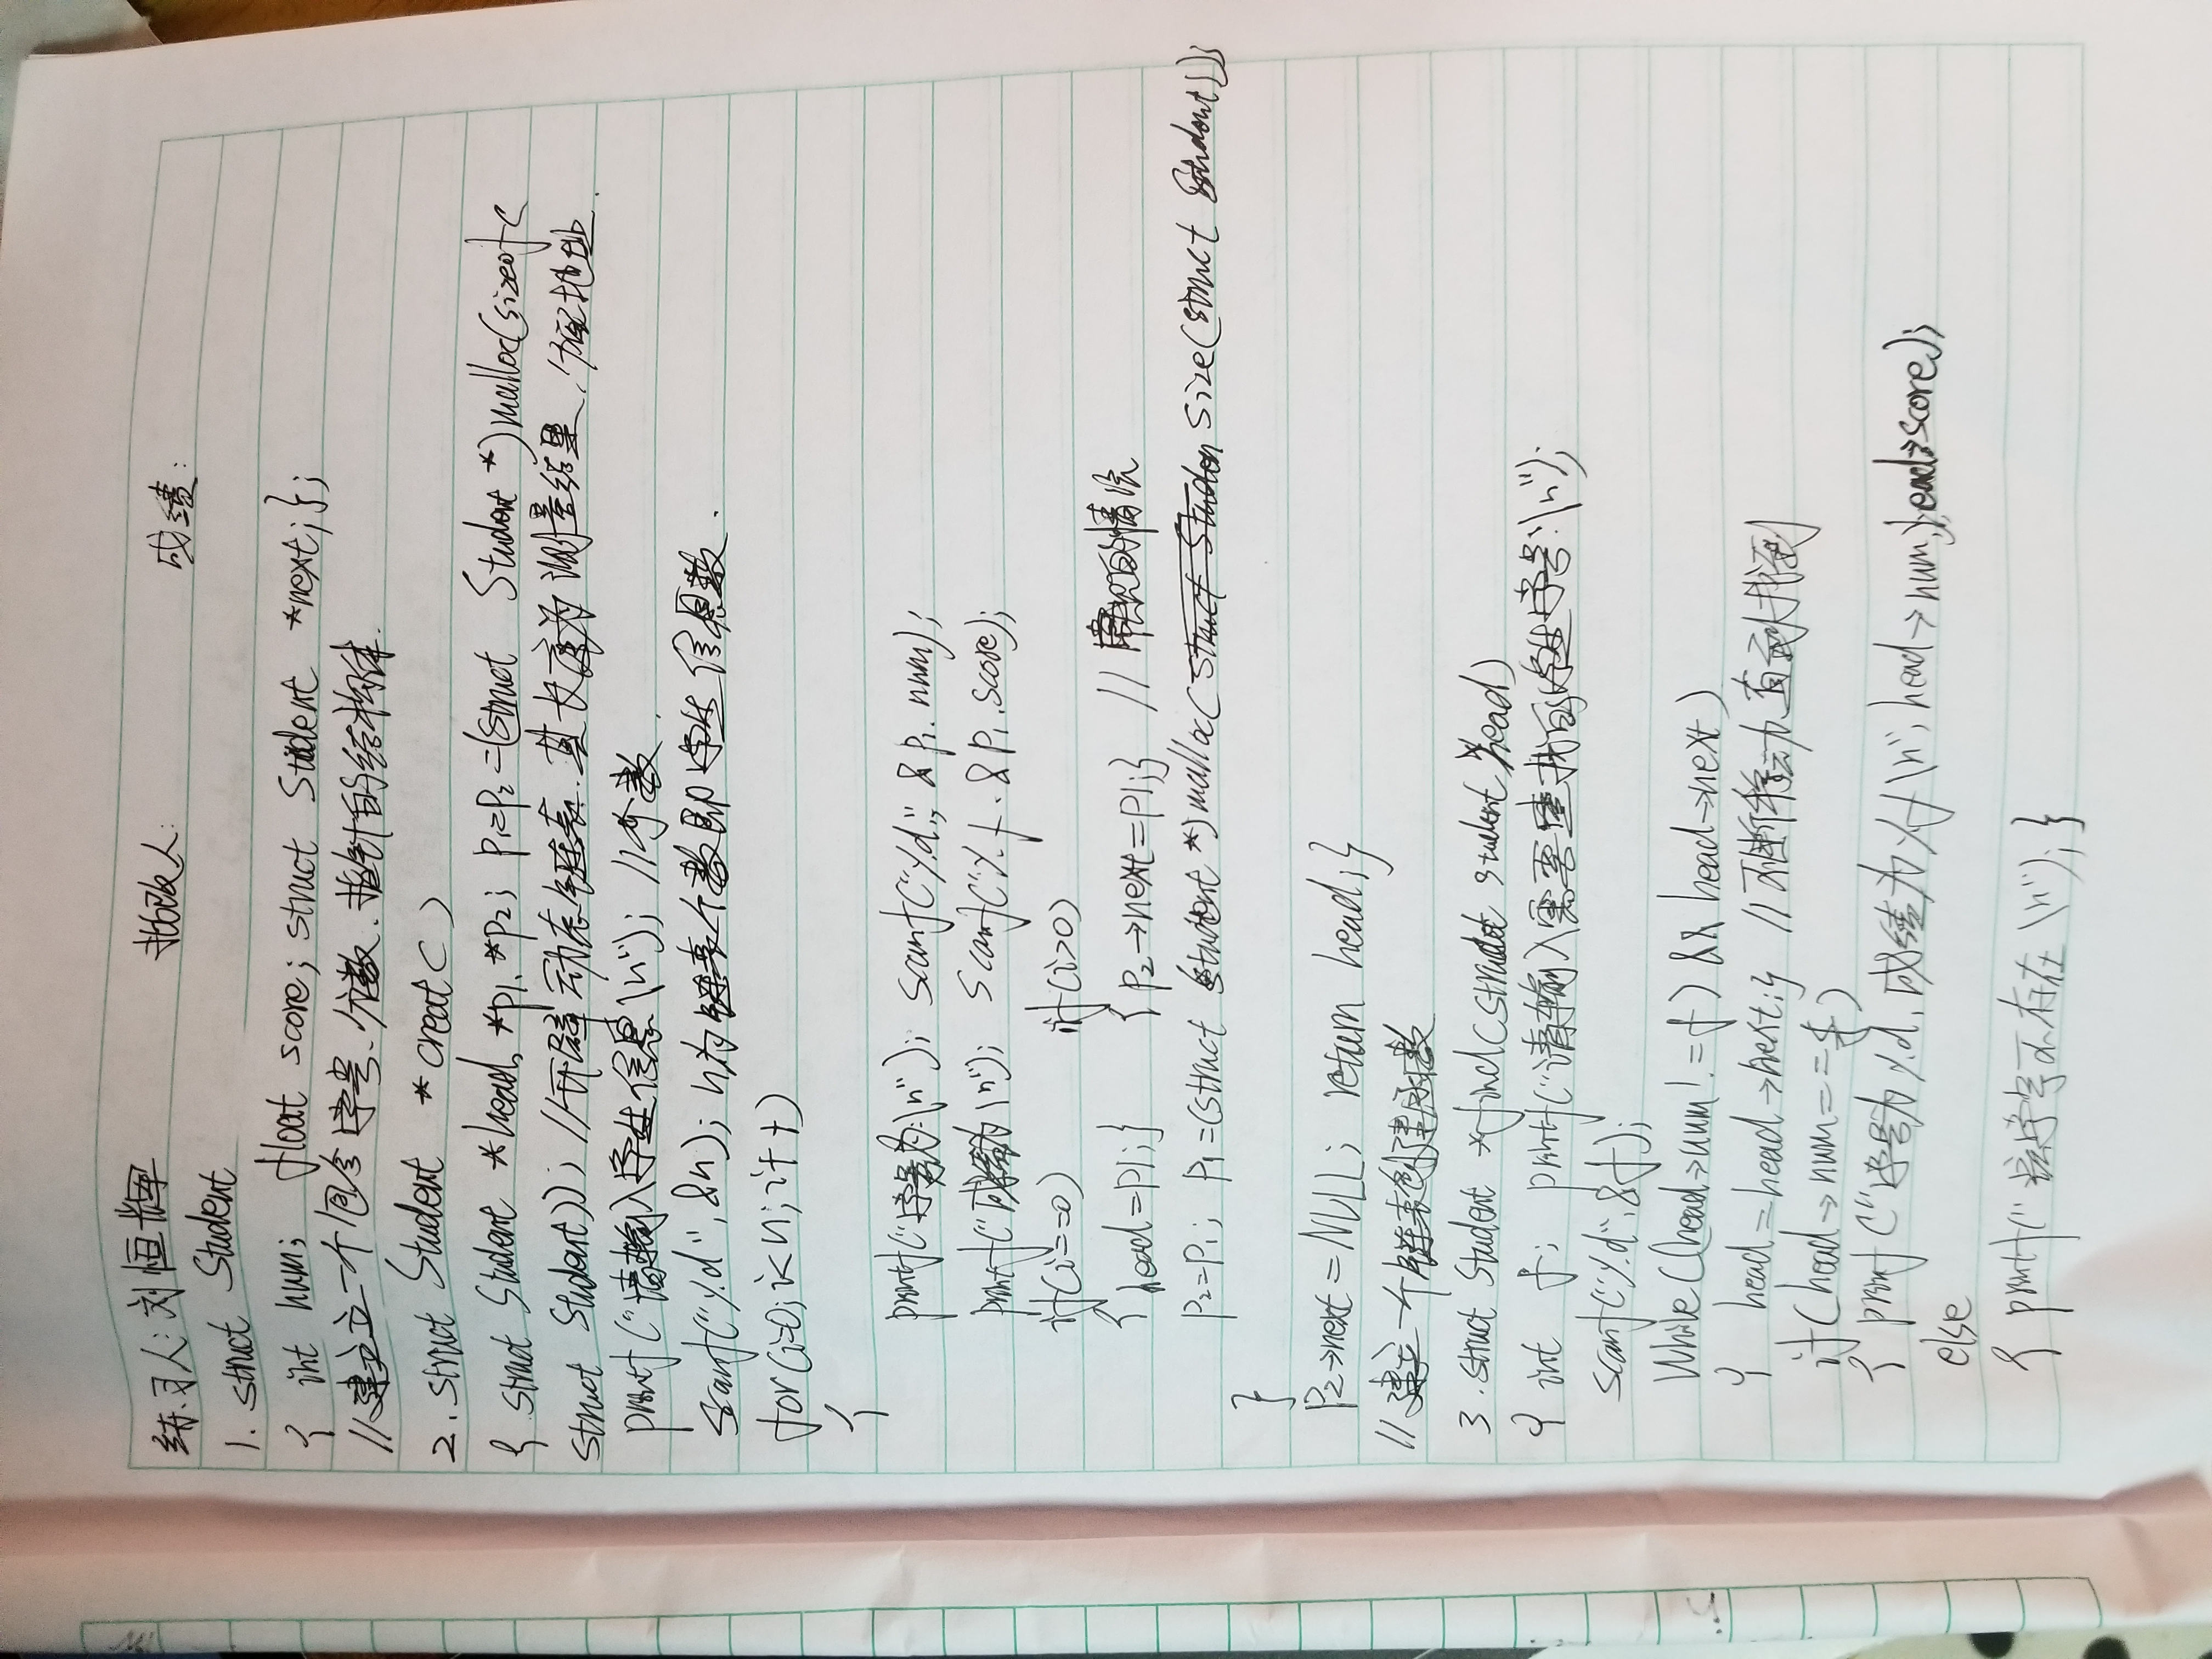 练习人: 刘恒辉 批改人: 成绩:
1. struct Student
{ int num; float score; struct Student *next;};
//建立一个包含学号、分数、指针的结构体.
2. struct Student *creat( )
{ struct Student *head, *p1, *p2; p1=p2=(struct Student *)malloc(sizeof(
struct Student)); //开辟动态链表.其长度为测量结果,分配地址.
printf("请输入学生信息\n"); //个数.
scanf("%d",&n); n为链表个数即学生信息数.
for(i=0;i<n;i++)
{
printf("学号为:\n"); scanf("%d", &p1.num);
printf("成绩为\n"); scanf("%f, &p1.score);
if(i==0) if(i>0)
{head=p1;} {p2→next=p1;} // 的情况
p2=p1; p1=(struct student *)malloc( size(struct student));
}
p2→next=NULL; return head;}
//建立一个链表创建函数
3.struct Student *find(struct student *head)
{ int f; printf("请输入需要查找的学生学号:\n");
scanf("%d",&f);
while((head→num!=f) && head→next)
{ head=head→next;} //不断移动,直到找到
if(head→num==f)
{ printf("学号为%d,成绩为%f\n",head→num,head→score);
else
{ printf("该学号不存在\n");}